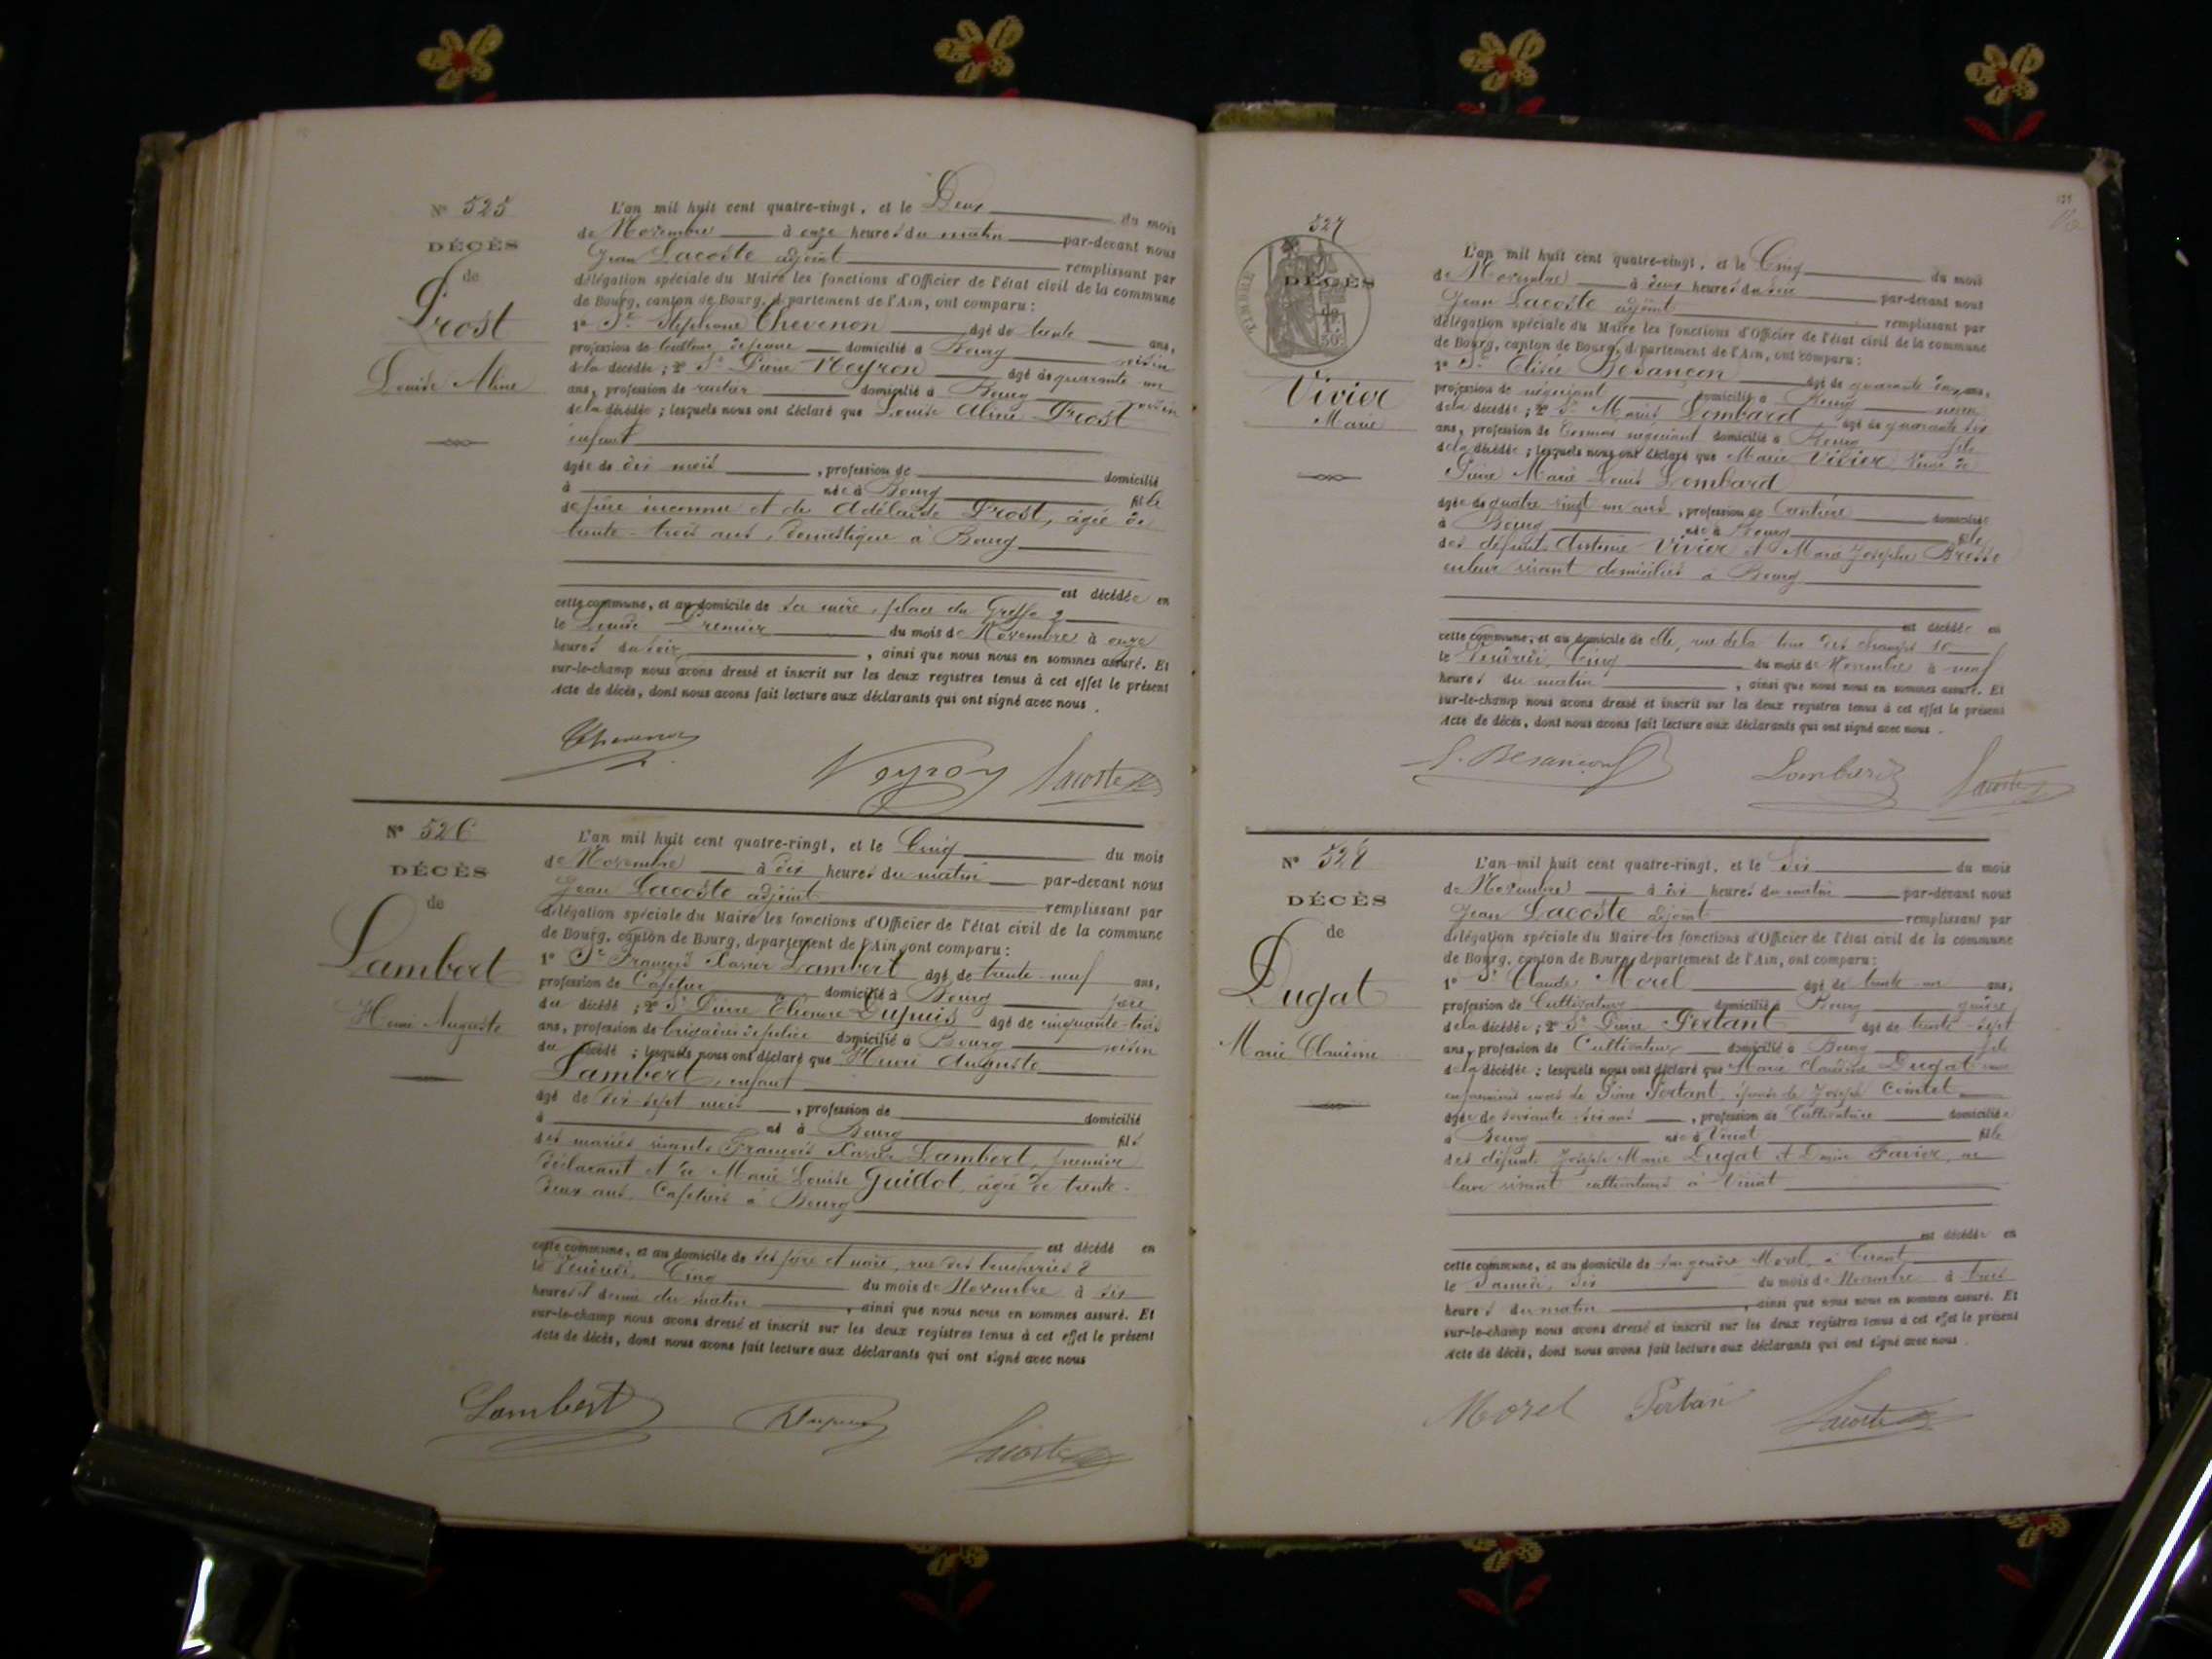 N° 525
DÉCÈS
de
Prost
Louise Aline
L'an mil huit cent quatre-vingt, et le Deux du mois
de Novembre à onze heures du matin par-devant nous
Jean Lacoste adjoint remplissant par
délégation spéciale du Maire les fonctions d'Officier de l'état civil de la commune
de Bourg, canton de Bourg, département de l'Ain, ont comparu :
1° Sr Stéphane Chevenon âgé de trente ans,
profession de domicilié à Bourg voisin
de la décédée ; 2° Sr Pierre Neyron âgé de quarante un
ans, profession de domicilié à Bourg voisin
de la décédée ; lesquels nous ont déclaré que Louise Aline Prost
enfant
âgée de dix mois , profession de domicilié
à née à Bourg fille
de père inconnu et de Adélaïde Prost, âgée de
trente-trois ans, domestique à Bourg
est décédée en
cette commune, et au domicile de sa mère, place du Greffe 2
le Lundi Premier du mois de Novembre à onze
heures du soir , ainsi que nous nous en sommes assuré. Et
sur-le-champ nous avons dressé et inscrit sur les deux registres tenus à cet effet le présent
Acte de décès, dont nous avons fait lecture aux déclarants qui ont signé avec nous .
Chevenon Neyron Lacoste
N° 526
DÉCÈS
de
Lambert
Henri Auguste
L'an mil huit cent quatre-vingt, et le Cinq du mois
de Novembre à dix heures du matin par-devant nous
Jean Lacoste adjoint remplissant par
délégation spéciale du Maire les fonctions d'Officier de l'état civil de la commune
de Bourg, canton de Bourg, département de l'Ain, ont comparu :
1° Sr François Xavier Lambert âgé de trente-neuf ans,
profession de Cafetier domicilié à Bourg père
du décédé ; 2° Sr Pierre Eléonore Dupuis âgé de cinquante-trois
ans, profession de brigadier de police domicilié à Bourg voisin
du décédé ; lesquels nous ont déclaré que Henri Auguste
Lambert, enfant
âgé de dix-sept mois , profession de domicilié
à né à Bourg fils
des mariés vivants François Xavier Lambert, premier
déclarant et de Marie Louise Guillot, âgée de trente-
deux ans, Cafetiers à Bourg
est décédé en
cette commune, et au domicile de ses père et mère, rue des boucheries 8
le Vendredi, Cinq du mois de Novembre à six
heures et demie du matin , ainsi que nous nous en sommes assuré. Et
sur-le-champ nous avons dressé et inscrit sur les deux registres tenus à cet effet le présent
Acte de décès, dont nous avons fait lecture aux déclarants qui ont signé avec nous
Lambert Dupuis Lacoste
527
TIMBRE
DÉCÈS
de
50c
Vivier
Marie
L'an mil huit cent quatre-vingt, et le Cinq du mois
de Novembre à deux heures du soir par-devant nous
Jean Lacoste adjoint remplissant par
délégation spéciale du Maire les fonctions d'Officier de l'état civil de la commune
de Bourg, canton de Bourg, département de l'Ain, ont comparu :
1° Sr Elisée Besançon âgé de quarante ans,
profession de négociant domicilié à Bourg neveu
de la décédée ; 2° Sr Marius Lombard âgé de quarante six
ans, profession de négociant domicilié à Bourg fils
de la décédée ; lesquels nous ont déclaré que Marie Vivier Veuve de
Pierre Marie Louis Lombard
âgée de quatre-vingt un ans , profession de Rentière domiciliée
à Bourg née à Bourg fille
des défunts Antoine Vivier et Marie Josephe Bresse
en leur vivant domiciliés à Bourg
est décédée en
cette commune, et au domicile de elle, rue de la tour des champs 10
le Vendredi, Cinq du mois de Novembre à neuf
heures du matin , ainsi que nous nous en sommes assuré. Et
sur-le-champ nous avons dressé et inscrit sur les deux registres tenus à cet effet le présent
Acte de décès, dont nous avons fait lecture aux déclarants qui ont signé avec nous .
E. Besançon Lombard Lacoste
N° 528
DÉCÈS
de
Dugat
Marie Claudine
L'an mil huit cent quatre-vingt, et le Six du mois
de Novembre à dix heures du matin par-devant nous
Jean Lacoste adjoint remplissant par
délégation spéciale du Maire les fonctions d'Officier de l'état civil de la commune
de Bourg, canton de Bourg, département de l'Ain, ont comparu :
1° Sr Claude Morel âgé de trente-un ans,
profession de Cultivateur domicilié à Bourg gendre
de la décédée ; 2° Sr Pierre Pertant âgé de trente-sept
ans, profession de Cultivateur domicilié à Bourg fils
de la décédée ; lesquels nous ont déclaré que Marie Claudine Dugat
en premières noces de Pierre Pertant, épouse de Joseph Cointet
âgée de soixante-six ans , profession de Cultivatrice domiciliée
à Bourg née à Viriat fille
des défunts Joseph Marie Dugat et Favier, en
leur vivant cultivateurs à Viriat
est décédée en
cette commune, et au domicile de son gendre Morel, à
le Samedi, Six du mois de Novembre à trois
heures du matin , ainsi que nous nous en sommes assuré. Et
sur-le-champ nous avons dressé et inscrit sur les deux registres tenus à cet effet le présent
Acte de décès, dont nous avons fait lecture aux déclarants qui ont signé avec nous .
Morel Pertan Lacoste